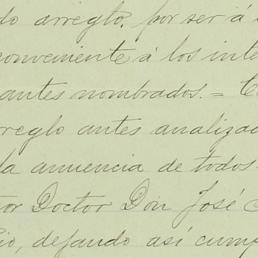 do arreglo, por ser á
conveniente á los inte
antes nombrados. =
rreglo antes analizad
la anuencia de todos
tor Doctor Don José
io, dejando así cump